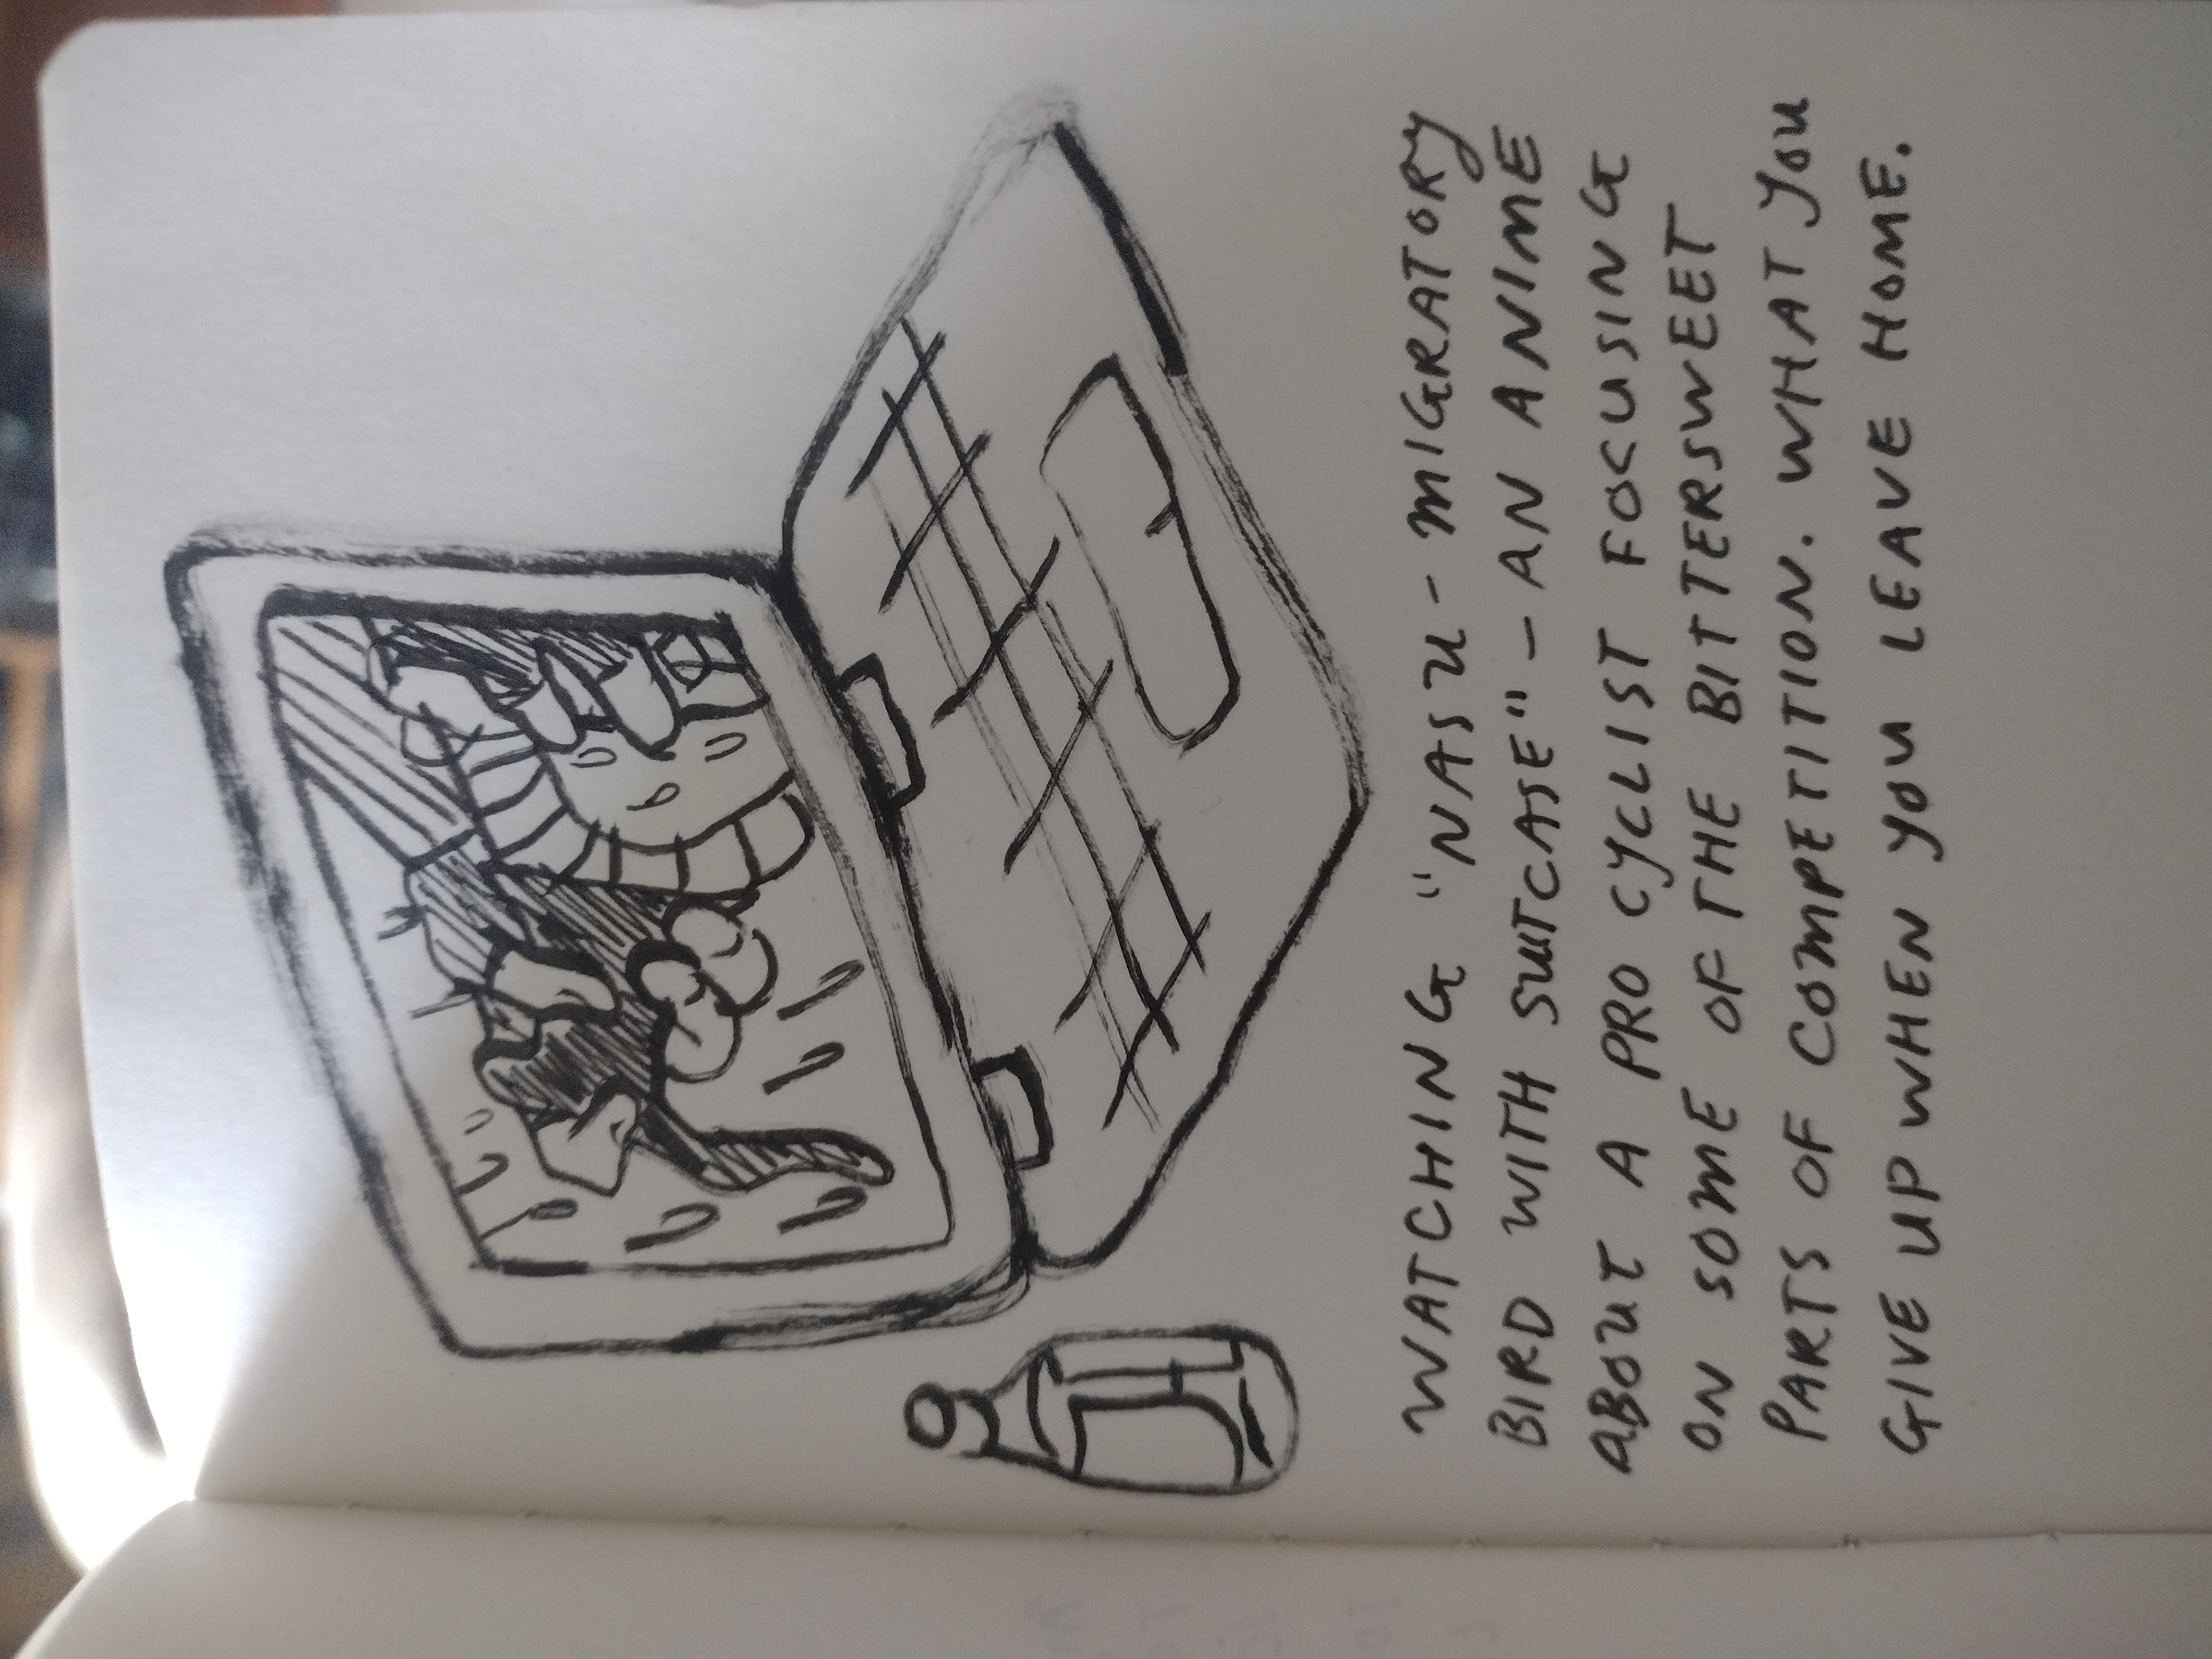 WATCHING "NASU - MIGRATORY
BIRD WITH SUITCASE" - AN ANIME
ABOUT A PRO CYCLIST FOCUSING
ON SOME OF THE BITTERSWEET
PARTS OF COMPETITION. WHAT YOU
GIVE UP WHEN YOU LEAVE HOME.